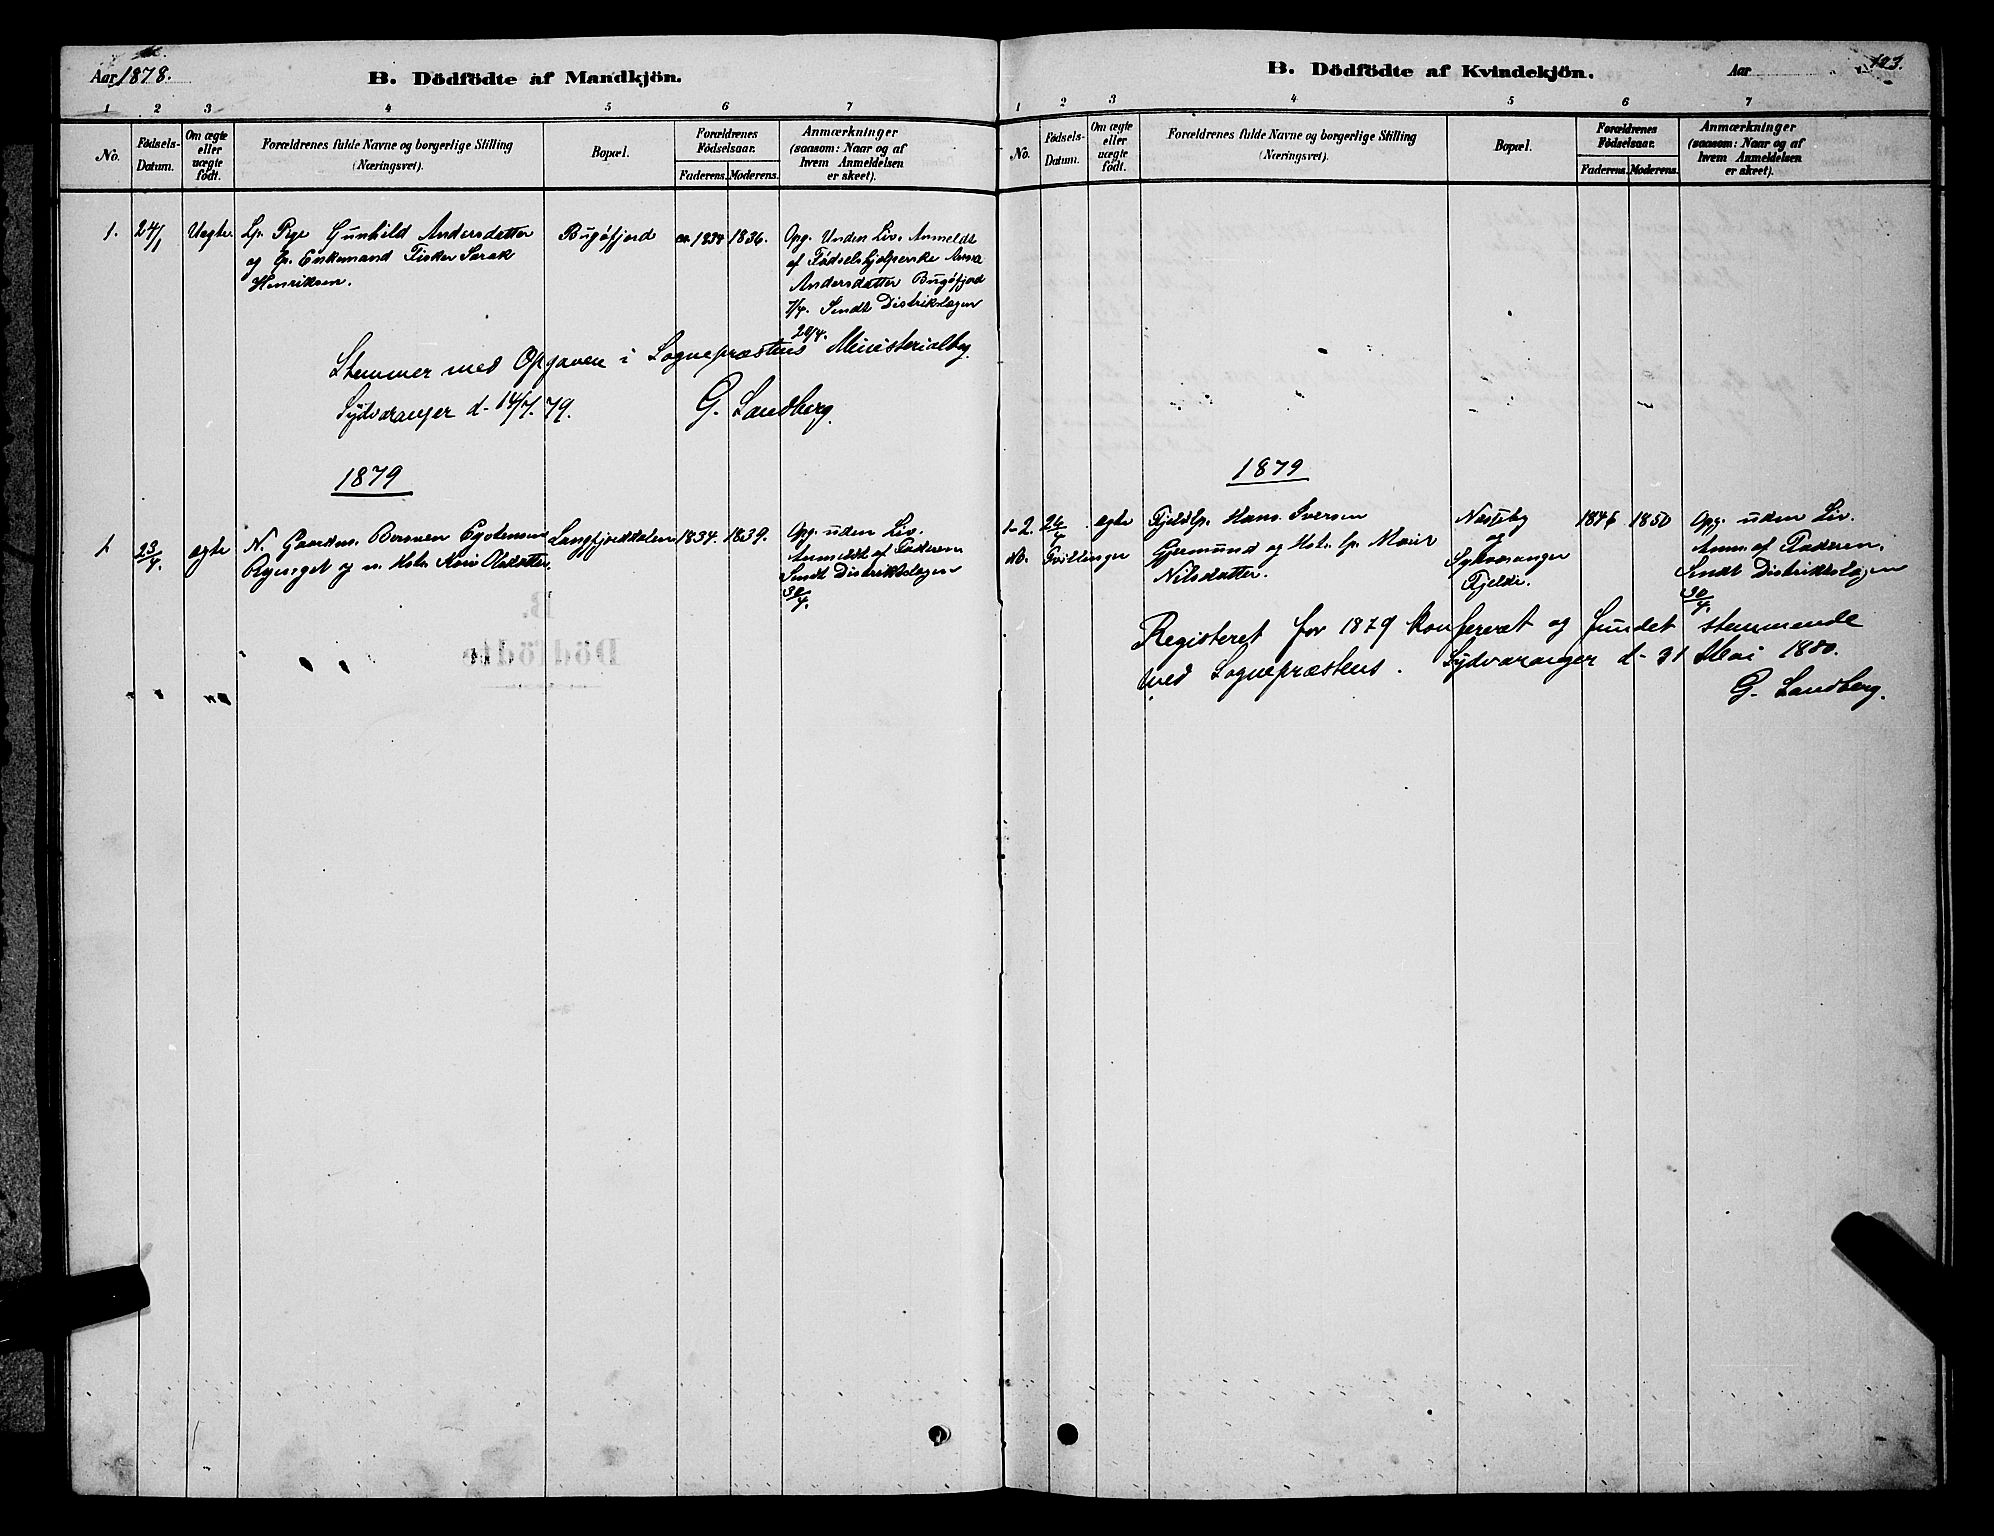 Aar 1878.
B. Dödfödte af Mandkjön.
1 2 3 4 5 6 7
No.
Födsels-
Datum.
Om ægte
eller
uægte
födt.
Forældrenes fulde Navne og borgerlige Stilling
(Næringsvei).
Bopæl.
Forældrenes
Födselsaar.
Faderens. Moderens.
Anmærkninger
(saasom: Naar og af
hvem Anmeldelsen
er skeet).
1. 24/1 Uægte. Lp. Pige Gunhild Andersdatter Bugøfjord 1836. Opg. Uden Liv. Anmeldt
og Lp. Enkemand Fisker af Fødselshjelperske Anna
Henriksen. Andersdatter Bugøfjord
7/4. Sendt Distriktslægen
20/4.
Stemmer med Opgaven i Sognepræstens Ministerialbog
Sydvaranger d. 14/7.79. G. Sandberg.
1879
1. 23/4 ægte N. Gaardm. Langfjorddalen 1834. 1839. Opg. uden Liv.
og n. Hstr. Olsdatter Anmeldt af Faderen
Sendt Distriktslægen
30/4.
B.
Dödfödte
B. Dödfödte af Kvindekjön.
Aar
103.
1 2 3 4 5 6 7
No.
Födsels-
Datum.
Om ægte
eller
uægte
födt.
Forældrenes fulde Navne og borgerlige Stilling
(Næringsvei).
Bopæl.
Forældrenes
Födselsaar.
Faderens. Moderens.
Anmærkninger
(saasom: Naar og af
hvem Anmeldelsen
er skeet).
1879
1-2. 26/4 ægte Fjeldlp. Hans Iversen Næsseby 1850 Opg. uden Liv.
Tvillinger Gjermund og Hstr. lp. Marie og Anm. af Faderen.
Nilsdatter. Sydvaranger Sendt Distriktslægen
Fjelde. 30/4.
Registeret for 1879 konfereret og fundet stemmende
med Sognepræstens. Sydvaranger d. 31 Mai 1880.
G. Sandberg.